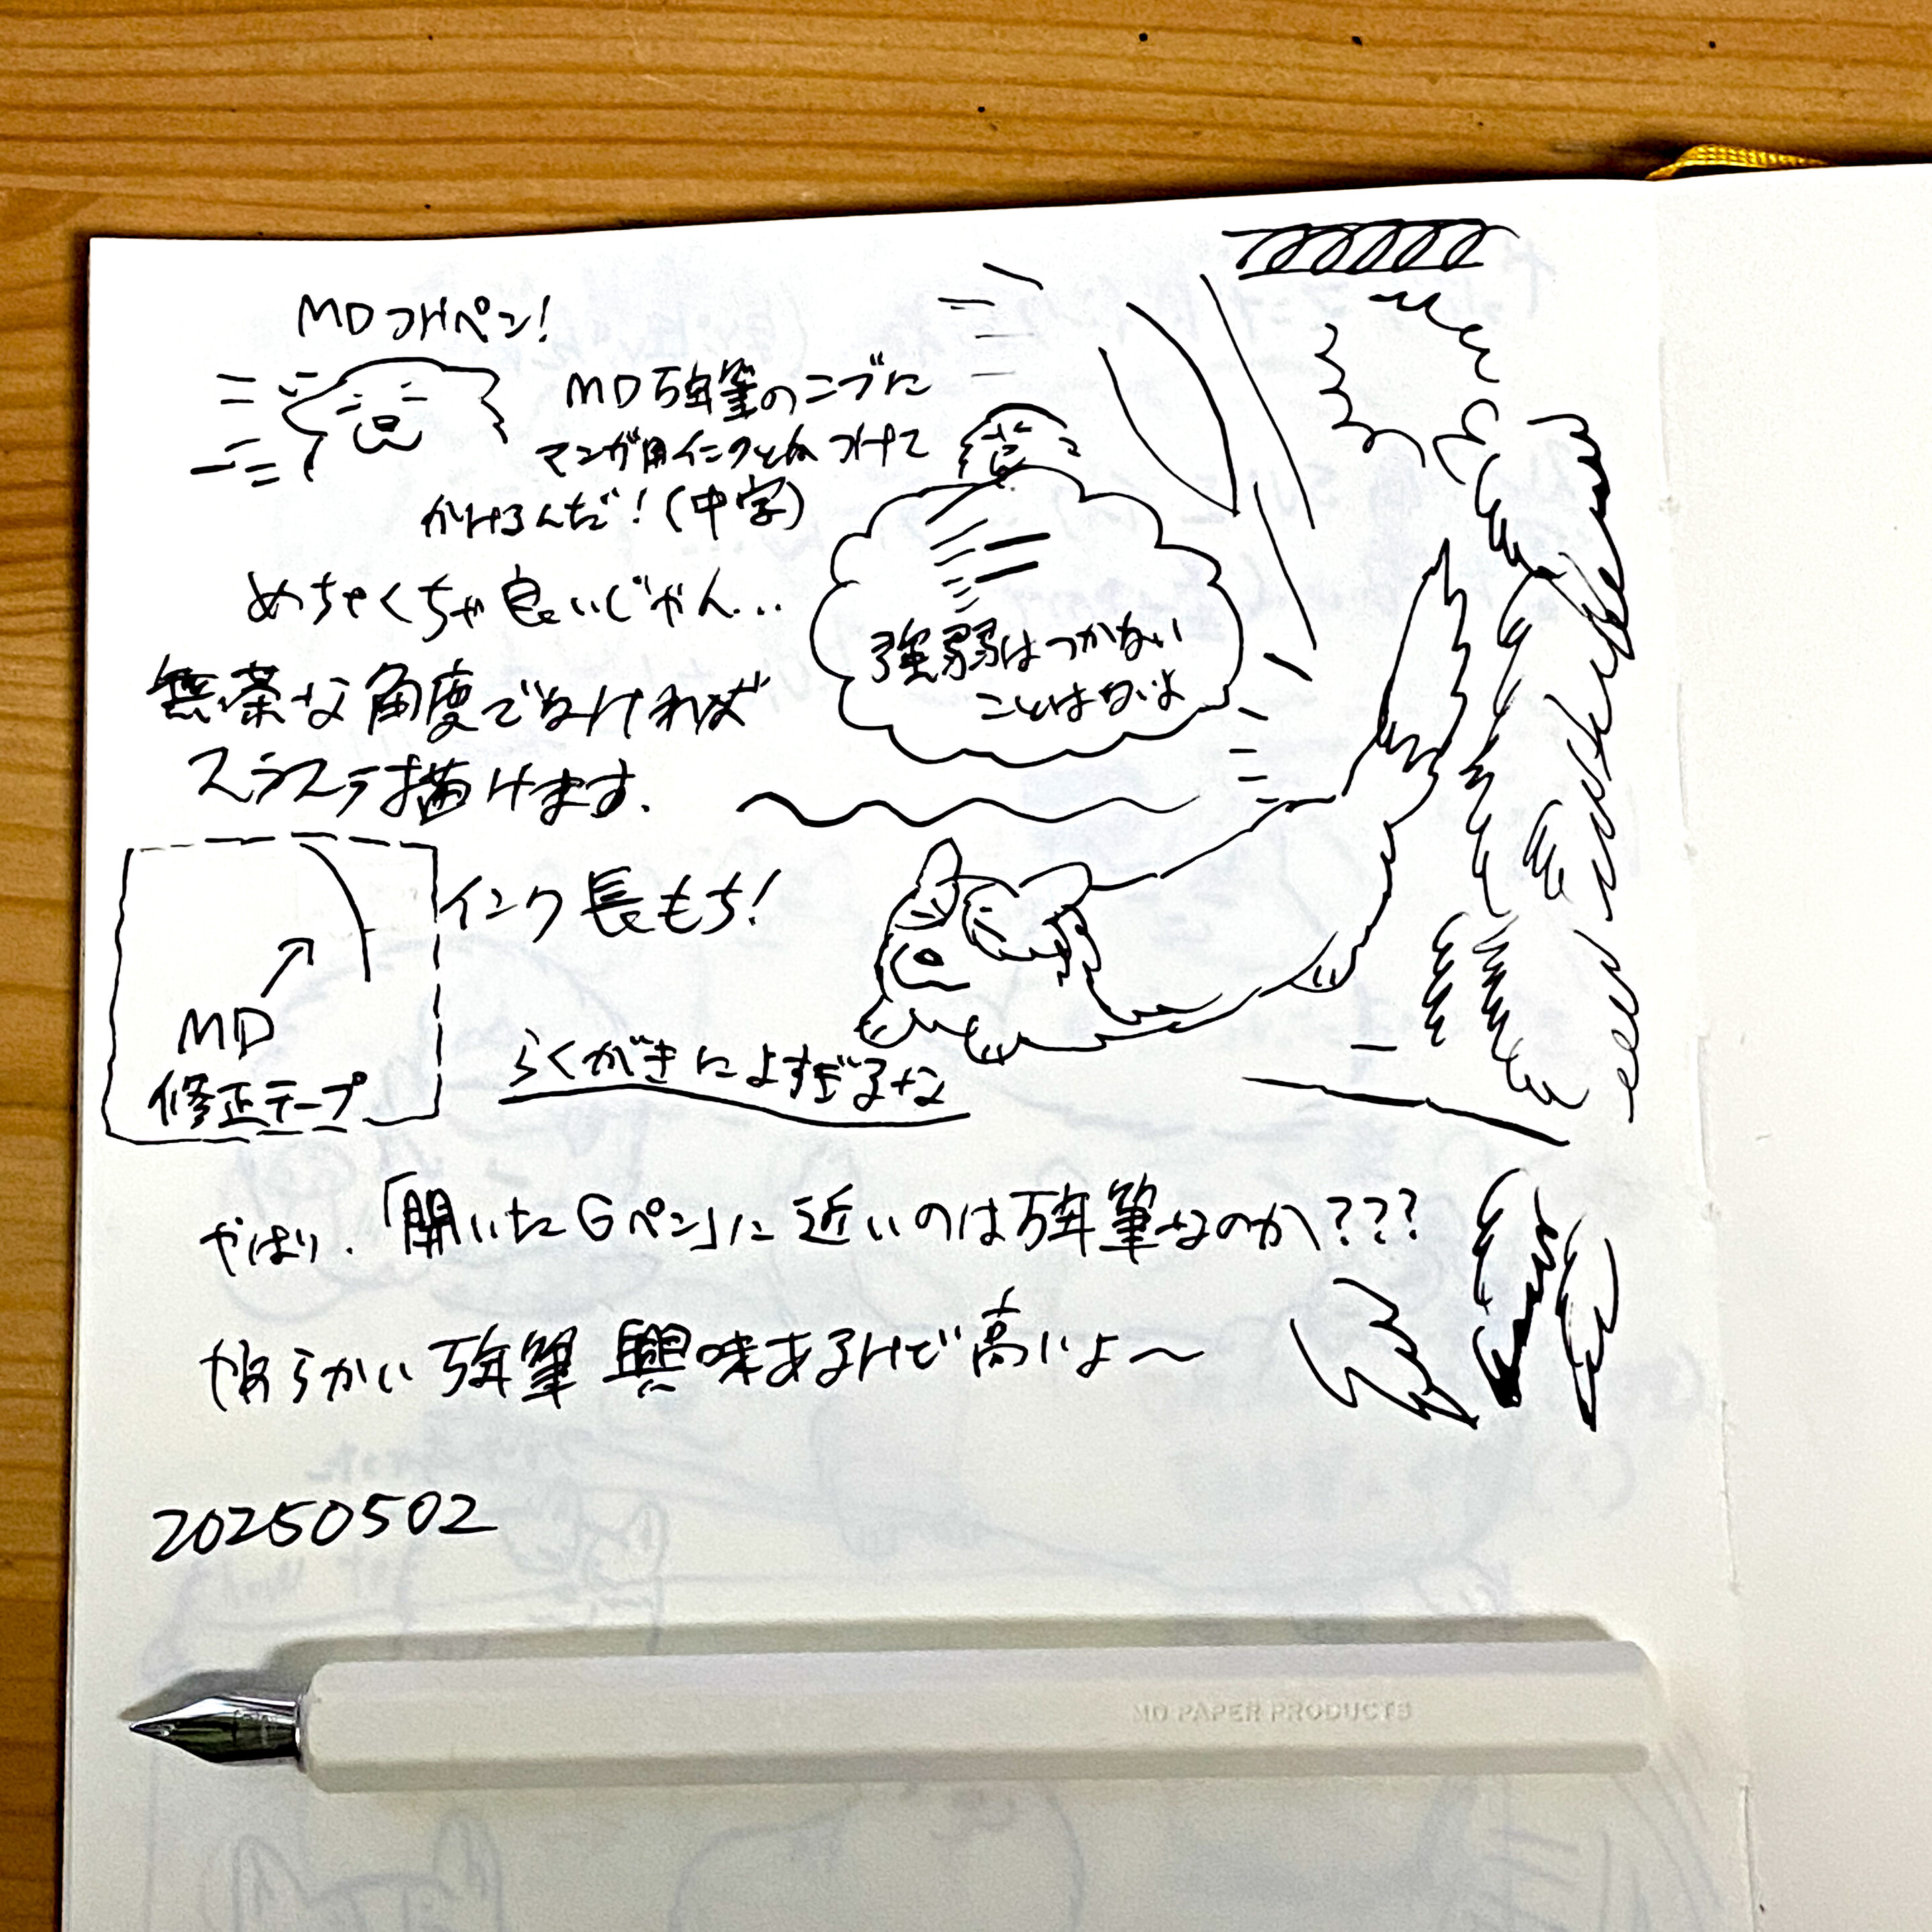 MDつけペン!
MD万年筆のニブに
マンガ用インクとかつけて
かけるんだ!(中字)
めちゃくちゃ良いじゃん...
無茶な角度でなければ
スラスラ描けます.
強弱はつかない
ことはないよ
インク長もち!
MD
修正テープ
らくがきによすぎる
やはり.「開いたGペン」に近いのは万年筆なのか???
やわらかい万年筆興味あるけど高いよ〜
20250502
MD PAPER PRODUCTS